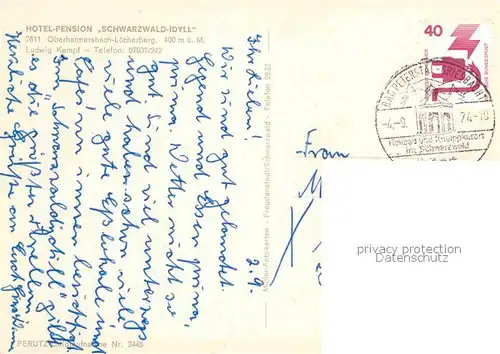 HOTEL-PENSION „SCHWARZWALD-IDYLL"
7611 Oberharmersbach-Löcherberg, 400 m ü. M.
Ludwig Kempf – Telefon: 07837/242
2.9.
Ihr Lieben!
Wir sind gut gelandet.
Gegend und Essen prima,
prima. Wetter nicht so
gut. Sind viel unterwegs
und haben schon viele,
viele gute Eßlokale und
Cafes von innen besichtigt.
"Schwarzwaldidyll" gibt
es die größten Forellen.
Herzliche Grüße an Euch
PERUTZ Nr. 3445
Müller-Farbkarten – Freudenstadt/Schwarzwald – Telefon 28 31
Frau
M
40
DEUTSCHE BUNDESPOST
BAD PETERSTAL-GRIESBACH 1
-4.-9. 74-18
Heilbad und Kneippkurort
im Schwarzwald
privacy protection
Datenschutz